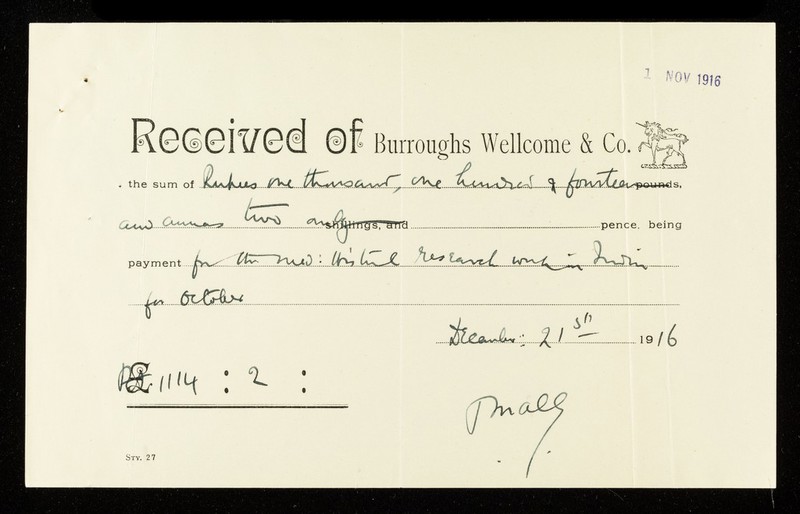 1 NOV 1916
Received of Burroughs Wellcome & Co.
the sum of Rupees one thousand, one hundred & fourteen pounds,
and annas two only shillings, and pence, being
payment for the med: Histcl research work in India
for October
December: 21st 1916
Rs. £ 1114 : 2 :
STY. 27